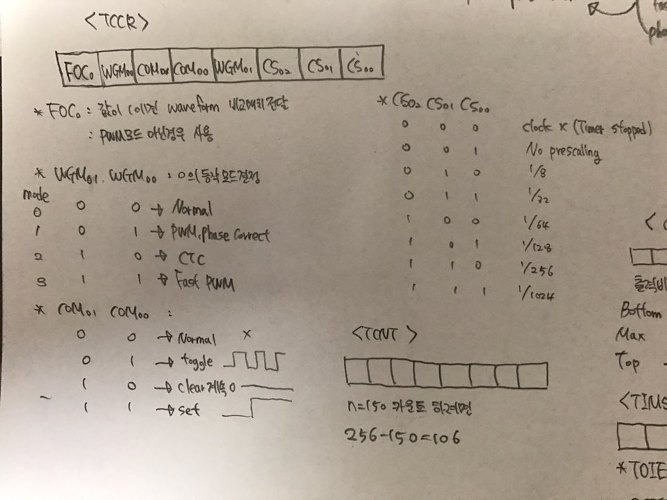 <TCCR>
FOC0 WGM00 COM01 COM00 WGM01 CS02 CS01 CS00
* FOC0 : 값이 1이면 waveform 비교매치 전달
: PWM모드 아닌경우 사용
* WGM01, WGM00 : 0의 동작모드결정
mode
0 0 0 → Normal
1 0 1 → PWM, Phase Correct
2 1 0 → CTC
3 1 1 → Fast PWM
* COM01 COM00 :
0 0 → Normal x
0 1 → toggle
1 0 → clear 계속 0
1 1 → set
* CS02 CS01 CS00
0 0 0 clock x (Timer stopped)
0 0 1 No prescaling
0 1 0 1/8
0 1 1 1/32
1 0 0 1/64
1 0 1 1/128
1 1 0 1/256
1 1 1 1/1024
<TCNT>
n=150 카운트 하려면
256-150=106
출력비
Bottom
Max
Top
<TIMS
*TOIE